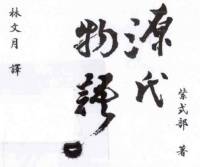 源氏
物語
紫式部 著
林文月 譯